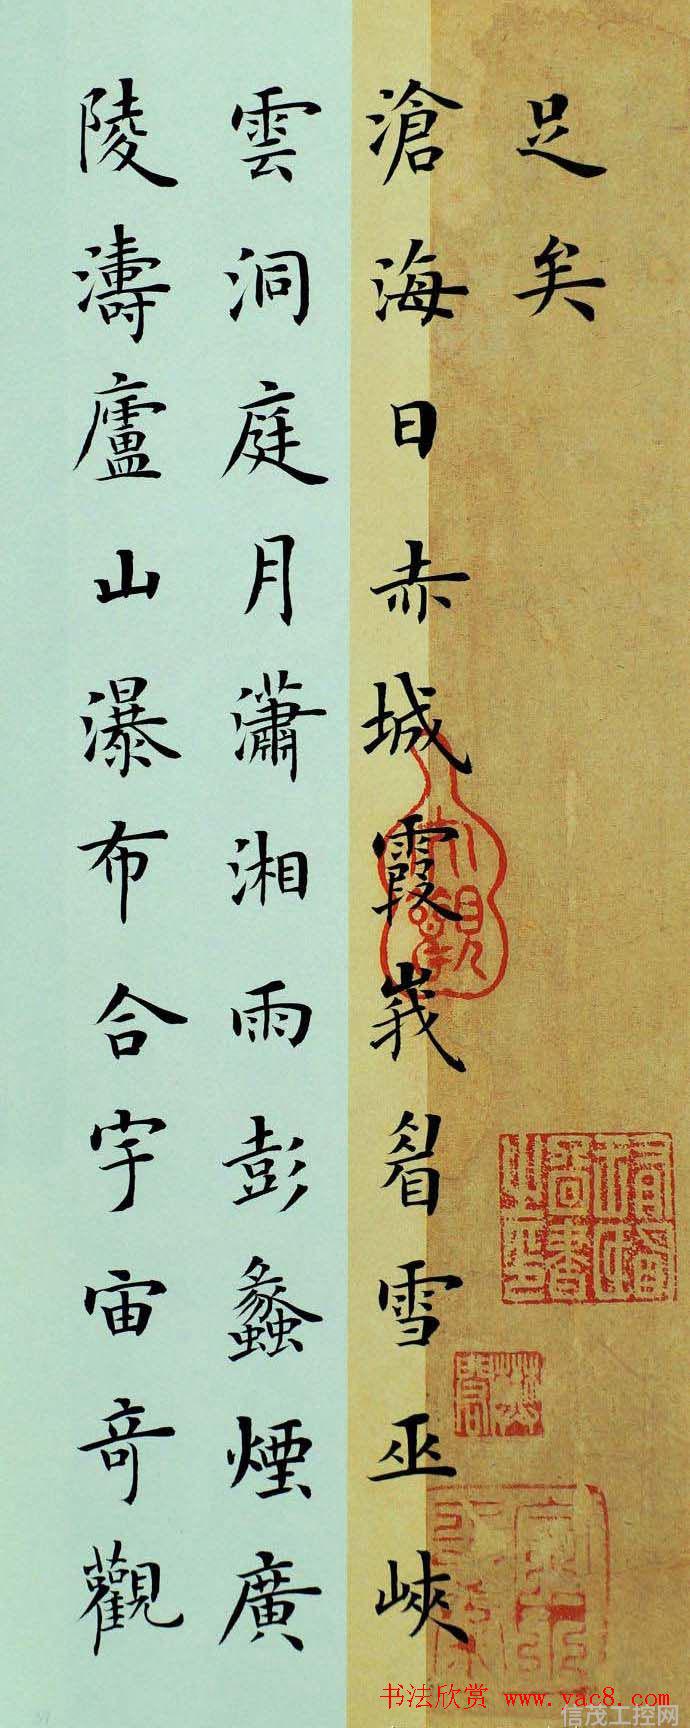 足矣
滄海日赤城霞峩眉雪巫峽
雲洞庭月瀟湘雨彭蠡煙廣
陵濤廬山瀑布合宇宙奇觀
书法欣赏 www.yac8.com
信茂工控网